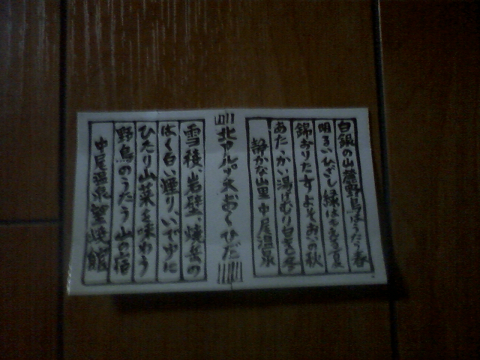 白銀の山麓野鳥はうたう春
明るいひざし緑はかなでる夏
錦おりなすよそおいの秋
あたゝかい湯けむり白き冬
静かな山里中尾温泉
北アルプスおくひだ
雪稜、岩壁、焼岳の
はく白い煙り、いで湯に
ひたり山菜を味わう
野鳥のうたう山の宿
中尾温泉